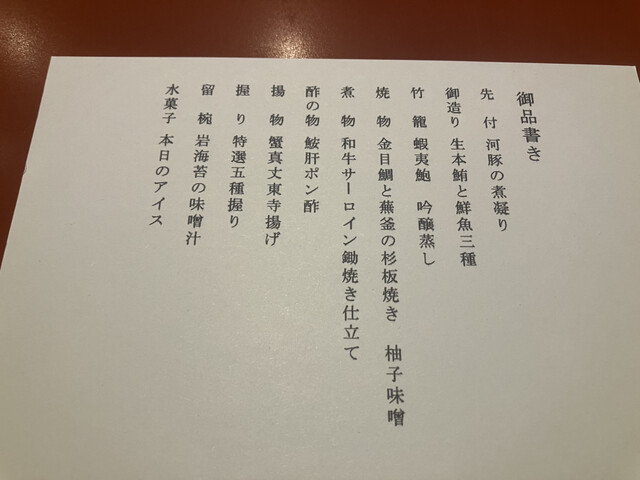 御品書き
先　付　河豚の煮凝り
御造り　生本鮪と鮮魚三種
竹　籠　蝦夷鮑　吟醸蒸し
焼　物　金目鯛と蕪釜の杉板焼き　柚子味噌
煮　物　和牛サーロイン鋤焼き仕立て
酢の物　鮟肝ポン酢
揚　物　蟹真丈東寺揚げ
握　り　特選五種握り
留　椀　岩海苔の味噌汁
水菓子　本日のアイス